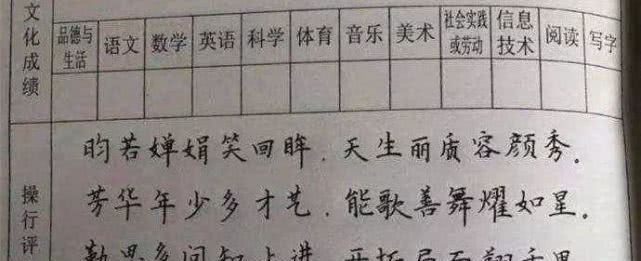 文化成绩
品德与生活 语文 数学 英语 科学 体育 音乐 美术 社会实践或劳动 信息技术 阅读 写字
操行评
昀若婵娟笑回眸．天生丽质容颜秀．
芳华年少多才艺．能歌善舞耀如星．
勤思多问知上进